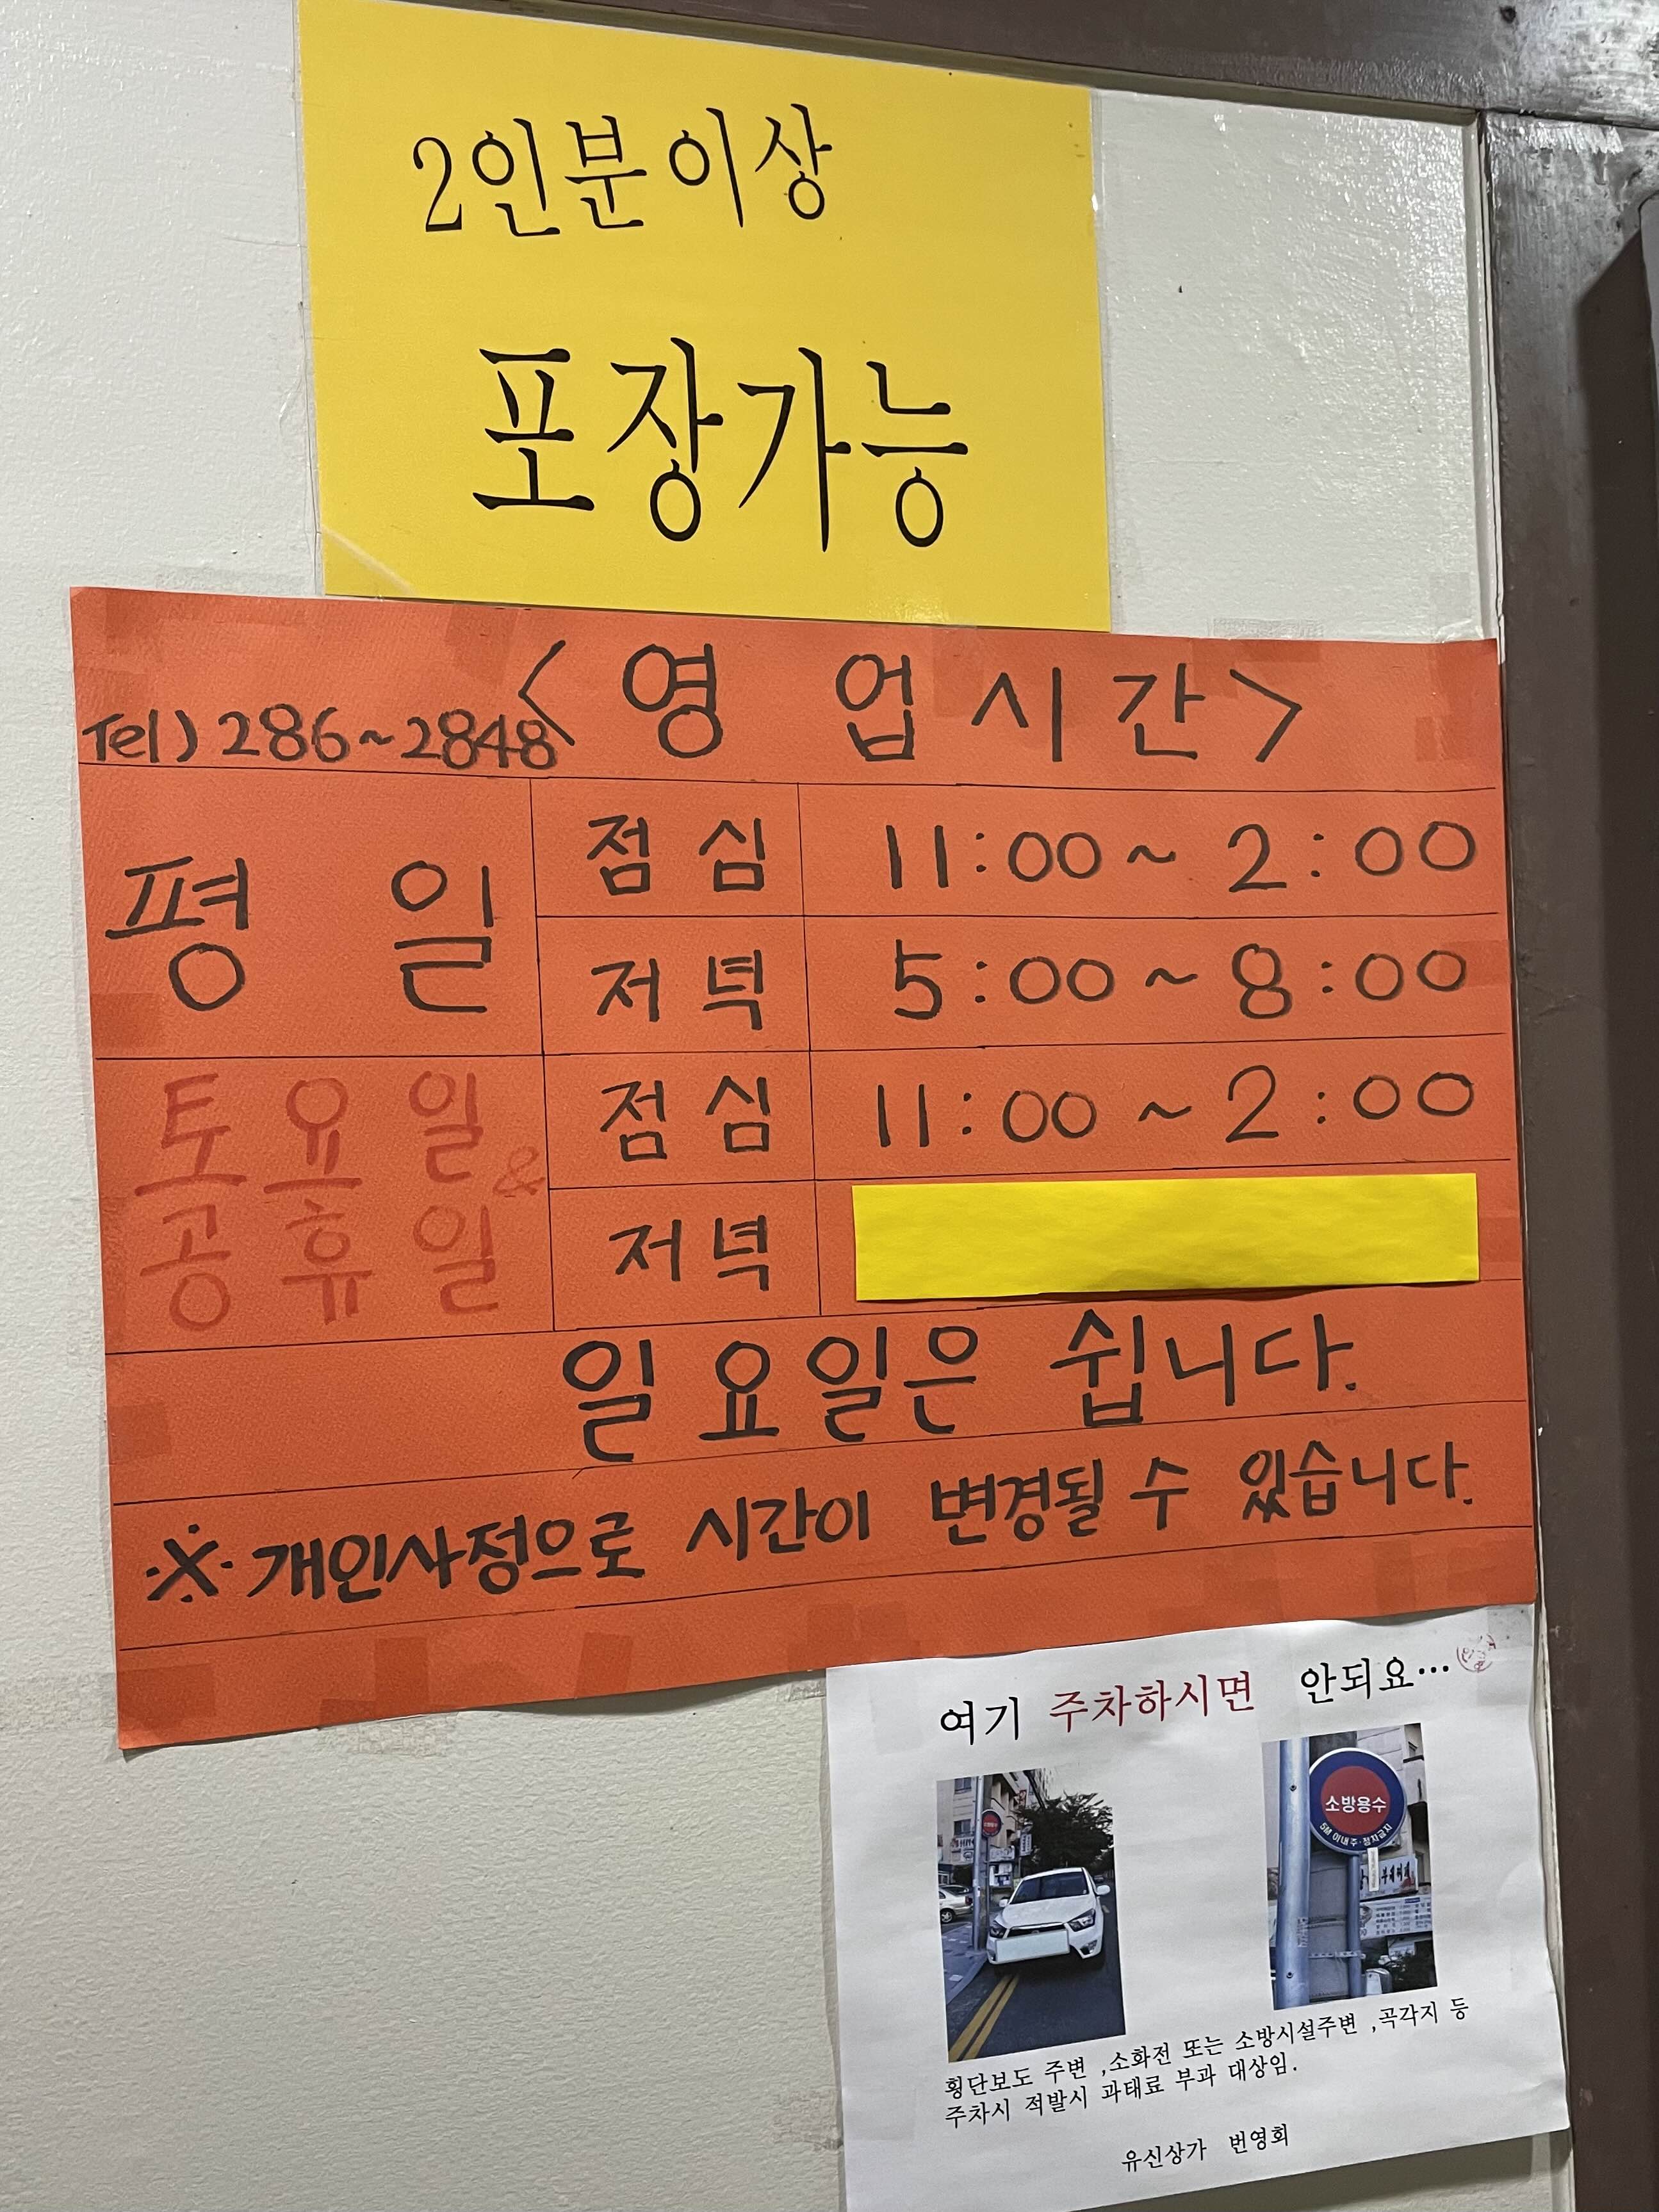 2인분이상
포장가능
<영 업시간>
Tel) 286~2848
평 일
점심 11:00 ~ 2:00
저녁 5:00 ~ 8:00
토요일 &
공휴일
점심 11:00 ~ 2:00
저녁
일요일은 쉽니다.
※ 개인사정으로 시간이 변경될 수 있습니다.
여기 주차하시면 안되요...
소방용수
5M 이내 주·정차금지
횡단보도 주변 ,소화전 또는 소방시설주변 ,곡각지 등
주차시 적발시 과태료 부과 대상임.
유신상가 번영회